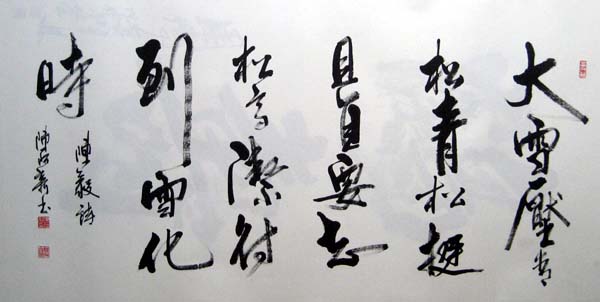 大雪壓青
松青松挺
且直要知
松高潔待
到雪化
時
陳毅詩